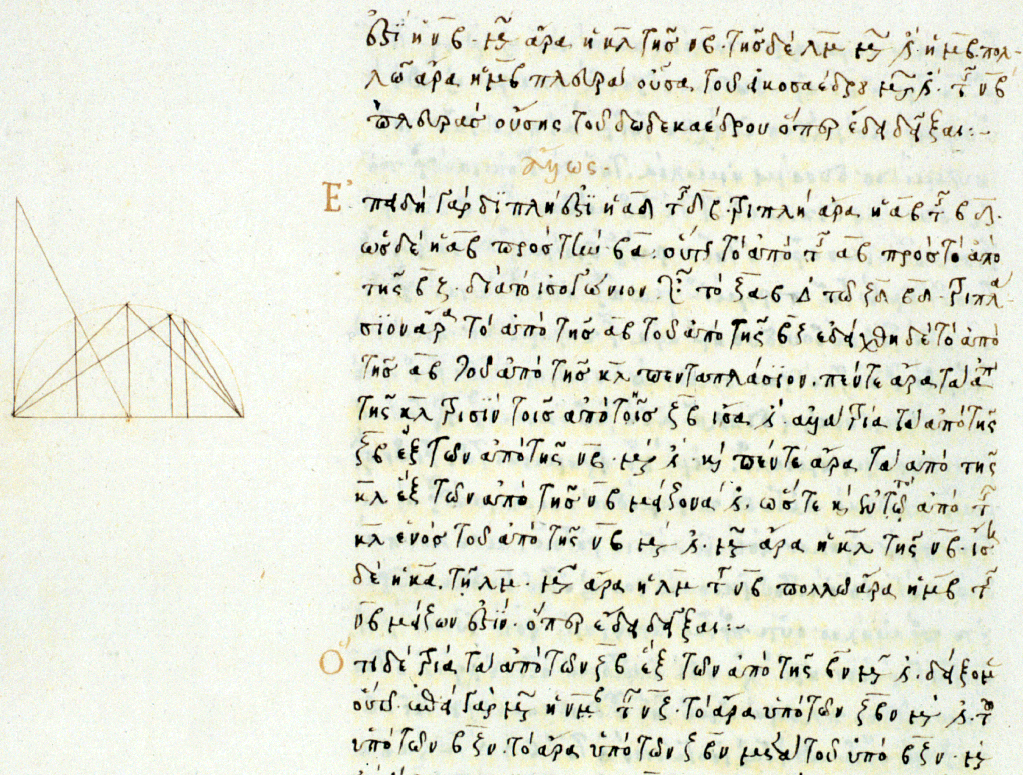 ἐστὶ ἡ ν̅β̅. μείζων ἄρα ἡ κ̅λ̅ τῆς ν̅β̅. τῆς δὲ λ̅μ̅ μείζων ἐστὶν ἡ μ̅β̅. πολ-
λῶ ἄρα ἡ μ̅β̅ πλευρὰ οὖσα τοῦ εἰκοσαέδρου μείζων ἐστὶ τῆς ν̅β̅
πλευρᾶς οὔσης τοῦ δωδεκαέδρου ὅπερ ἔδει δεῖξαι:~
ἄλλως.
Ἐπειδὴ γὰρ διπλῆ ἐστὶ ἡ α̅δ̅ τῆς δ̅β̅. τριπλῆ ἄρα ἡ α̅β̅ τῆς β̅δ̅.
ὡς δὲ ἡ α̅β̅ πρὸς τὴν β̅δ̅. οὕτως τὸ ἀπὸ τῆς α̅β̅ πρὸς τὸ ἀπὸ
τῆς β̅ξ̅. διὰ τὸ ἰσογώνιον εἶναι τὸ ξ̅α̅β̅ τρίγωνον τῶ ξ̅δ̅β̅. τριπλα
σίον ἄρα τὸ ἀπὸ τῆς α̅β̅ τοῦ ἀπὸ τῆς β̅ξ̅ ἐδείχθη δὲ τὸ ἀπὸ
τῆς α̅β̅ τοῦ ἀπὸ τῆς κ̅λ̅ πενταπλάσιον. πέντε ἄρα τὰ ἀπὸ
τῆς κ̅λ̅ τρισὶν τοῖς ἀπὸ τῆς ξ̅β̅ ἴσα ἐστὶν. ἀλλὰ τρία τὰ ἀπὸ τῆς
ξ̅β̅ ἓξ τῶν ἀπὸ τῆς ν̅β̅ μείζονά ἐστιν. καὶ πέντε ἄρα τὰ ἀπὸ τῆς
κ̅λ̅ ἓξ τῶν ἀπὸ τῆς ν̅β̅ μείζονά ἐστιν ὥστε καὶ ἓν τῶν ἀπὸ τῆς
κ̅λ̅ ἑνὸς τοῦ ἀπὸ τῆς ν̅β̅ μεῖζον ἐστιν. μείζων ἄρα ἡ κ̅λ̅ τῆς ν̅β̅. ἴση
δὲ ἡ κ̅λ̅ τῆ λ̅μ̅. μείζων ἄρα ἡ λ̅μ̅ τῆς ν̅β̅ πολλῶ ἄρα ἡ μ̅β̅ τῆς
ν̅β̅ μείζων ἐστίν. ὅπερ ἔδει δεῖξαι:~
Ὅτι δὲ τρία τὰ ἀπὸ τῶν ξ̅β̅ ἓξ τῶν ἀπὸ τῆς β̅ν̅ μείζονά ἐστιν. δείξομεν
οὕτως. ἐπεὶ γὰρ μείζων ἡ ν̅β̅ τῆς ν̅ξ̅. τὸ ἄρα ὑπὸ τῶν ξ̅β̅ν̅ μεῖζον ἐστι τοῦ
ὑπὸ τῶν β̅ξ̅ν̅. τὸ ἄρα ὑπὸ τῶν ξ̅β̅ν̅ μετὰ τοῦ ὑπὸ β̅ξ̅ν̅. μεῖζον